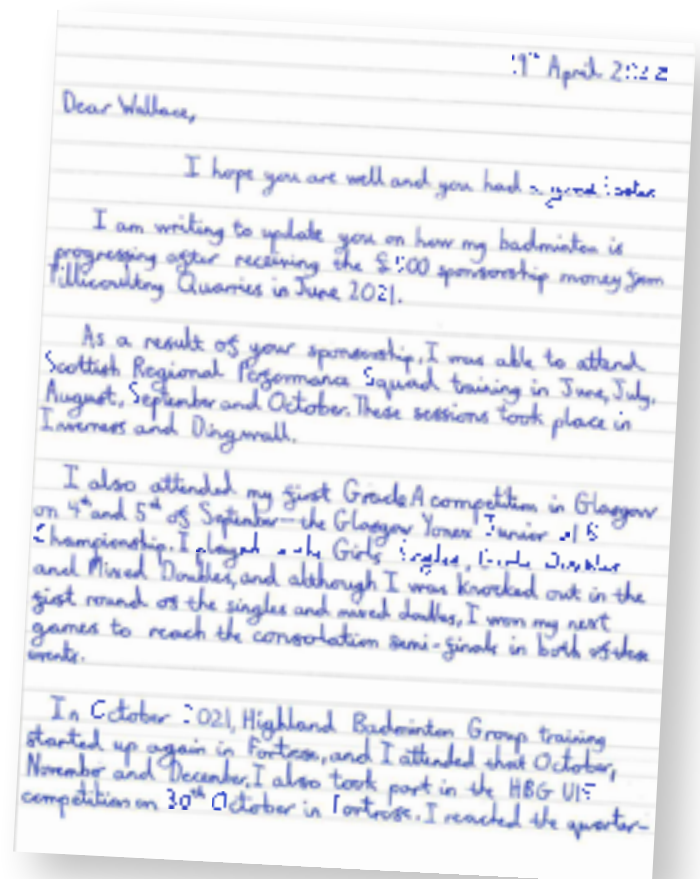 April
Dear Wallace,
I hope you are well and you had
I am writing to update you on how my badminton is
progressing after receiving the sponsorship money from
Tillicoultry Quarries in June 2021.
As a result of your sponsorship, I was able to attend
Scottish Regional Performance Squad training in June, July,
August, September and October. These sessions took place in
Inverness and Dingwall.
I also attended my first Grade A competition in Glasgow
on 4th and 5th of September - the Glasgow Yonex Junior
Championship. I played Girls Singles, Doubles
and Mixed Doubles, and although I was knocked out in the
first round of the singles and mixed doubles, I won my next
games to reach the consolation semi-finals in both of these
events.
In October 2021, Highland Badminton Group training
started up again in Fortrose, and I attended that October,
November and December. I also took part in the HBG
competition on 30th October in Fortrose. I reached the quarter-